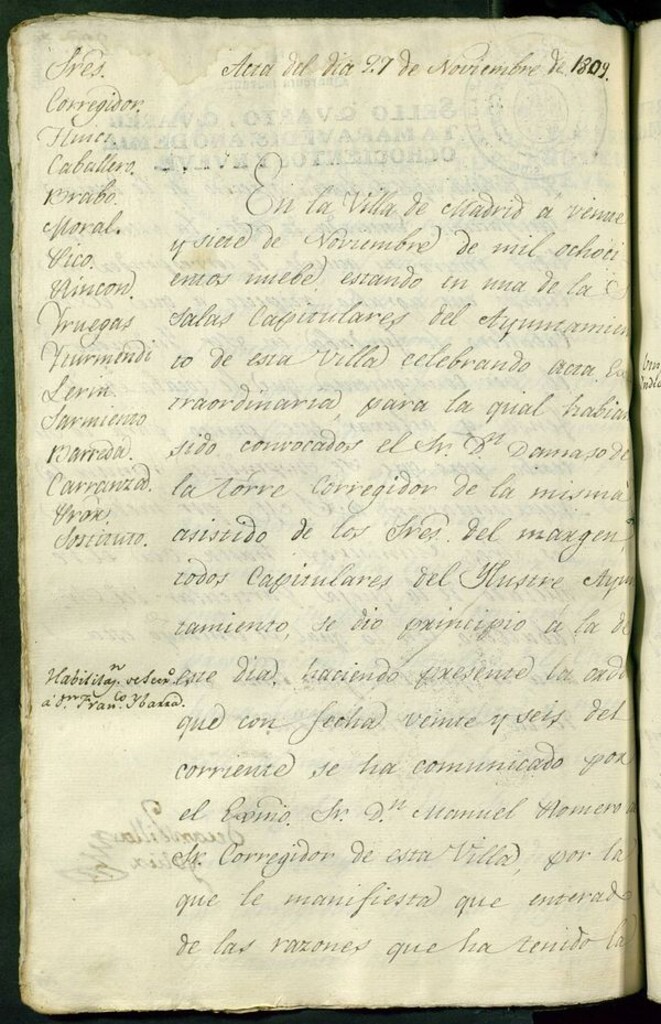 Acta del dia 27 de Noviembre de 1809.
Sres.
Corregidor.
Caballero.
Brabo.
Moral.
Vico.
Rincon.
Truegas
Yturmendi
Lerin.
Sarmiento
Barreda.
Carranza.
Sostituto.
En la Villa de Madrid a veinte
y siete de Noviembre de mil ochoci
entos nuebe, estando en una de la S
Salas Capitulares del Ayuntamien
to de esta Villa celebrando acta Ex
traordinaria, para la qual habian
sido convocados el Sr. Dn. Damaso de
la Torre Corregidor de la misma
asistido de los Sres. del margen,
todos Capitulares del Ylustre Ayun
tamiento, se dio principio a la de
este dia, haciendo presente la orden
que con fecha veinte y seis del
corriente se ha comunicado por
el Exmo. Sr. Dn. Manuel Romero a
Sr. Corregidor de esta Villa, por la
que le manifiesta que enterado
de las razones que ha tenido la
Habilitazn. de Secro.
a Dn. Franco. Ybarra.
SELLO QVARTO, QVAREN
TA MARAVEDIS, AÑO DE MIL
OCHOCIENTOS Y NUEVE.